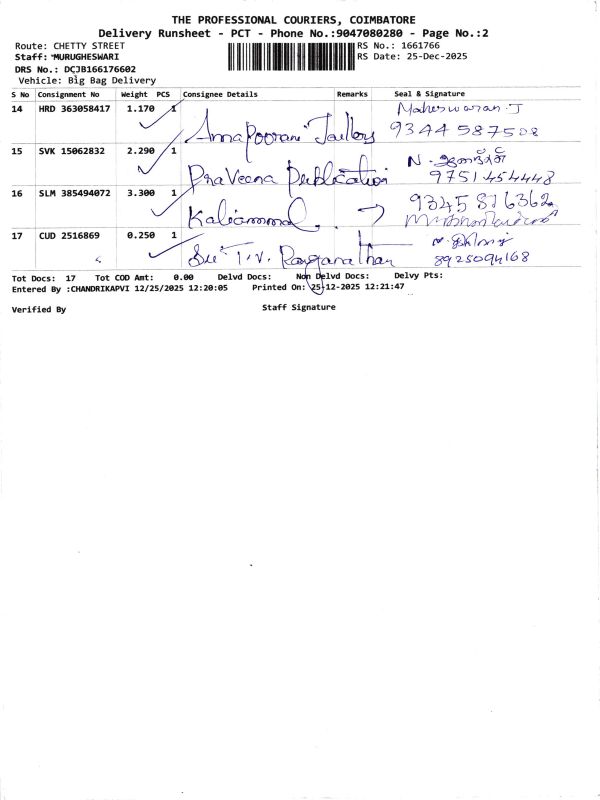 THE PROFESSIONAL COURIERS, COIMBATORE
Delivery Runsheet - PCT - Phone No.:9047080280 - Page No.:2
Route: CHETTY STREET
RS No.: 1661766
Staff: MURUGHESWARI
RS Date: 25-Dec-2025
DRS No.: DCJB166176602
Vehicle: Big Bag Delivery
S No Consignment No Weight PCS Consignee Details Remarks Seal & Signature
14 HRD 363058417 1.170 1 Annapoorani Tailors Maheswaran.J
9344587508
15 SVK 15062832 2.290 1 Praveena Publication N.
9751454448
16 SLM 385494072 3.300 1 Kaliammal 9345816362
17 CUD 2516869 0.250 1 Sri T.V. Ranganathan
8925094168
Tot Docs: 17 Tot COD Amt: 0.00 Delvd Docs: Non Delvd Docs: Delvy Pts:
Entered By :CHANDRIKAPVI 12/25/2025 12:20:05 Printed On: 25-12-2025 12:21:47
Verified By Staff Signature